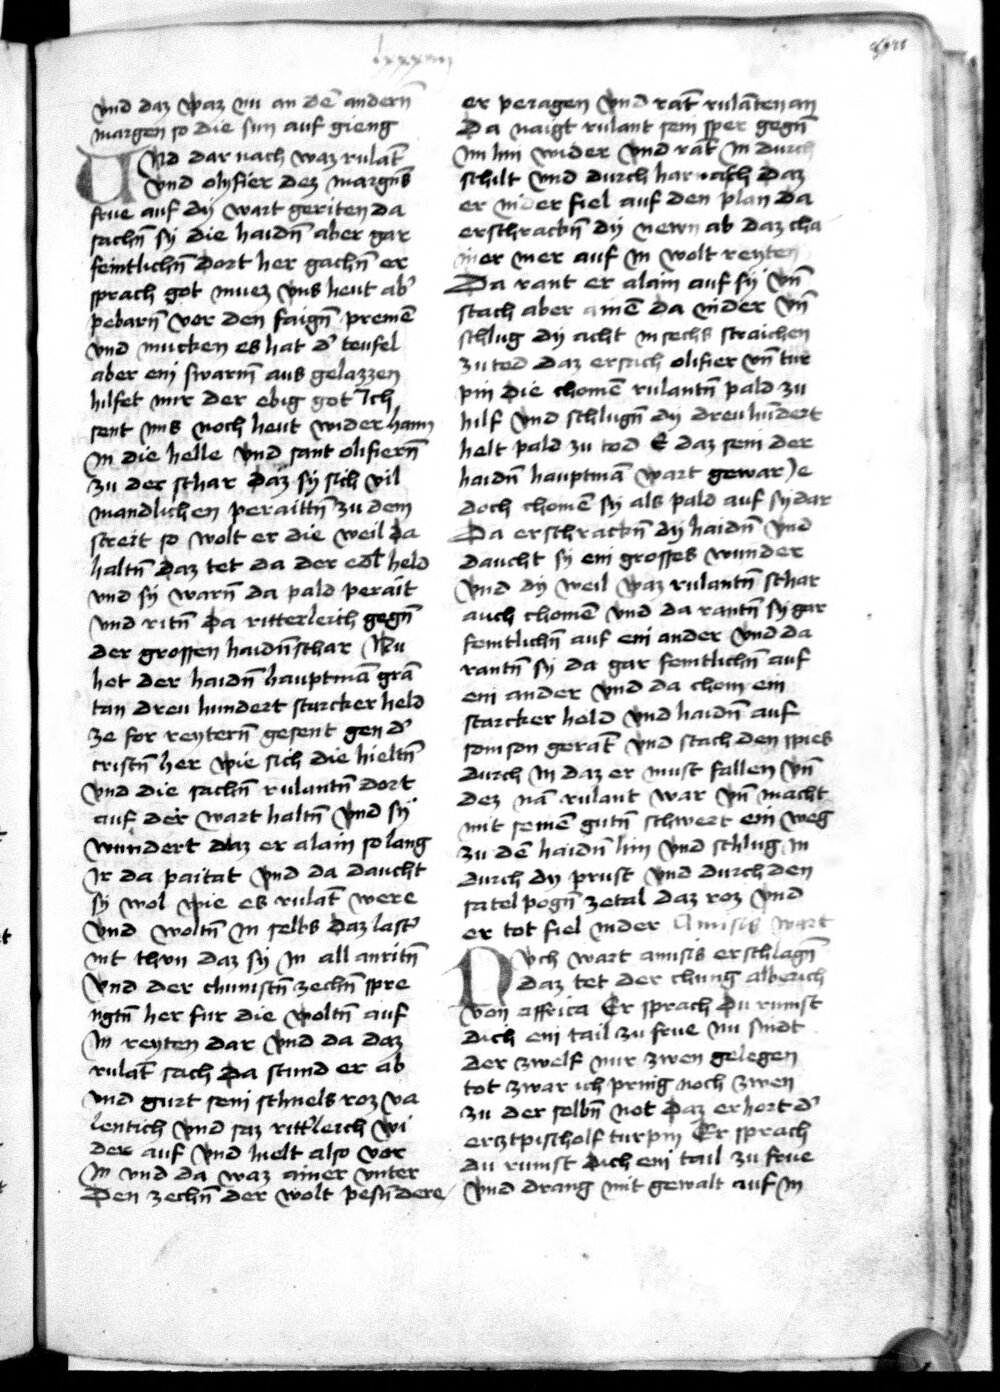 lxxxviii
vnd daz waz nu an dē andern̄
margen so die sun auf gieng
Vnd dar nach waz rulāt
vnd olyfier dez margn̄s
frue auf dy wart geriten da
sachn̄ sy die haidn̄ aber gar
feintlichn̄ dort her gachn̄ er
sprach got muez vns heut ab'
pebarn̄ vor den faign̄ premē
vnd mucken es hat d' teufel
aber ein swarm̄ aus gelazzen
hilfet mir der ebig got Ich
sent ms noch heut wider haim
in die helle vnd sant olifiern̄
zu der schar daz sy sich vil
mandlichen peraittn̄ zu dem
streit so wolt er die weil da
haltn̄ daz tet da der edl held
vnd sy warn̄ da pald perait
vnd ritn̄ da ritterleich gegn̄
der grossen haidn̄schar Nu
het der haidn̄ hauptmā grā
tan dreu hundert starcker held
ze for reytern̄ gesent gen d'
cristn̄ her wie sich die hieltn̄
vnd die sachn̄ rulantn̄ dort
auf der wart haltn̄ vnd sy
wundert daz er alain so lang
ir da paitat vnd da daucht
sy wol wie es rulāt were
vnd woltn̄ in selbs daz last'
nit thvn daz sy in all anritn̄
vnd der chunistn̄ zechn̄ spre
ngtn̄ her fur die woltn̄ auf
in reyten dar vnd da daz
rulāt sach da stund er ab
vnd gurt sein schnels roz va
lentich vnd saz ritt'leich wi
der auf vnd hielt also vor
in vnd da waz ainer vnter
den zechn̄ der wolt pesūdere
er peiagen vnd rāt rulāten an
da naigt rulant sein sper gegn̄
im hin wider vnd rāt in durch
schilt vnd durch harnasch daz
er nider fiel auf den plan da
erschrackn̄ dy newn ab daz cha
iner mer auf in wolt reyten
Da rant er alain auf sy vn̄
stach aber ainē da nider vn̄
schlug dy acht in sechs straichen
zu tod daz ersach olifier vn̄ tur
pin die chomē rulantn̄ pald zu
hilf vnd schlugn̄ dy dreu hundert
helt pald zu tod E daz sein der
haidn̄ hauptmā wart gewar Je
doch chomē sy als pald auf sy dar
Da erschrackn̄ dy haidn̄ vnd
daucht sy ein grosses wunder
vnd dy weil waz rulantn̄ schar
auch chomē vnd da rantn̄ sy gar
feintlichn̄ auf ein ander vnd da
rantn̄ sy da gar feintlichn̄ auf
ein ander vnd da chom ein
starcker held vnd haidn̄ auf
somson gerāt vnd stach den spies
durch in daz er must fallen vn̄
dez nā rulant war vn̄ macht
mit seinē gutn̄ schwert ein weg
zu dē haidn̄ hin vnd schlug in
durch dy prust vnd durch den
satel pogn̄ zetal daz roz vnd
er tot fiel nider Amisis wart
Noch wart amisis erschlagn̄
daz tet der chunig alberich
von affrica Er sprach du rumst
dich ein tail zu frue nu sindt
der zwelf mir zwen gelegen
tot zwar ich pring noch zwen
zu der selbn̄ not daz erhort d'
ercztpischolf turpin Er sprach
du rumst dich ein tail zu frue
vnd drang mit gewalt auf in